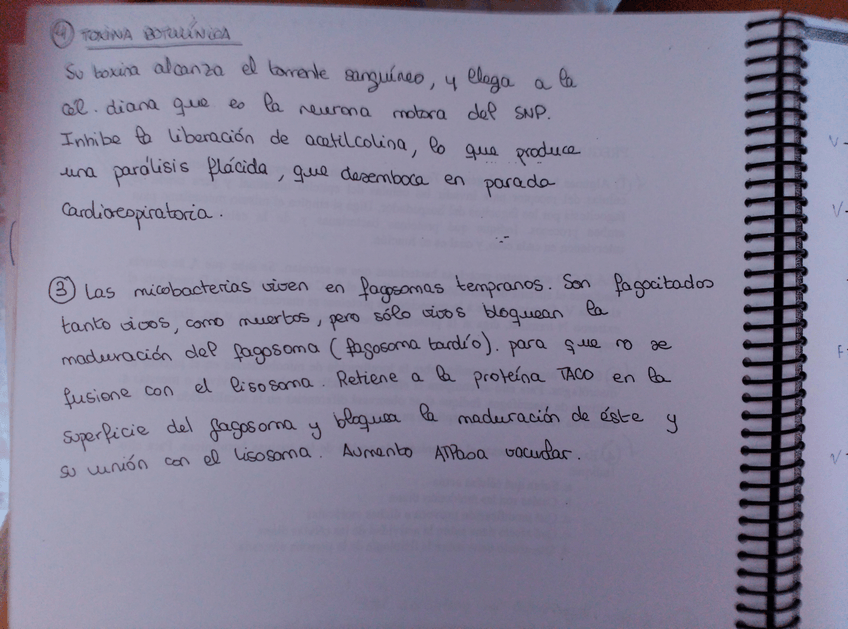 ④ TOXINA BOTULÍNICA
Su toxina alcanza el torrente sanguíneo, y llega a la
cel. diana que es la neurona motora del SNP.
Inhibe la liberación de acetilcolina, lo que produce
una parálisis flácida, que desemboca en parada
cardiorespiratoria.
③ Las micobacterias viven en fagosomas tempranos. Son fagocitados
tanto vivos, como muertos, pero sólo vivos bloquean la
maduración del fagosoma (fagosoma tardío). para que no se
fusione con el lisosoma. Retiene a la proteína TACO en la
superficie del fagosoma y bloquea la maduración de éste y
su unión con el lisosoma. Aumento ATPasa vacuolar.